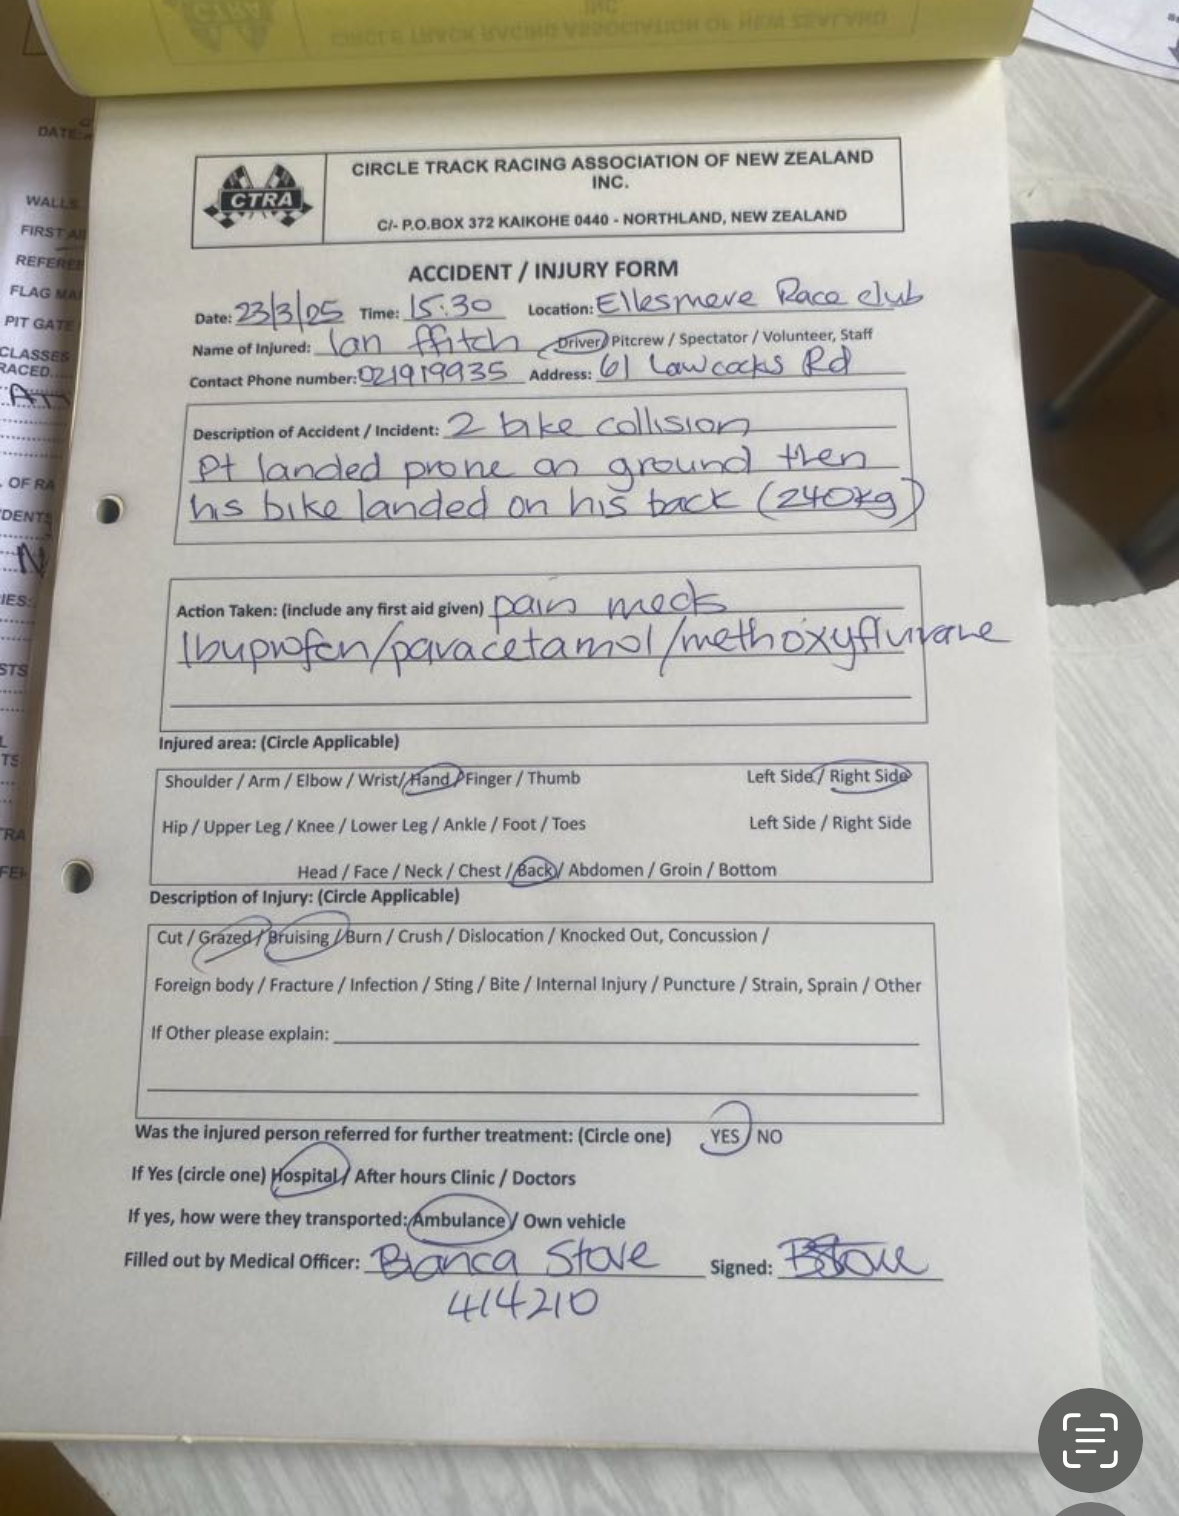 CIRCLE TRACK RACING ASSOCIATION OF NEW ZEALAND
INC.
CTRA
CIRCLE TRACK RACING ASSOCIATION OF NEW ZEALAND
INC.
C/- P.O.BOX 372 KAIKOHE 0440 - NORTHLAND, NEW ZEALAND
ACCIDENT / INJURY FORM
Date: 23/3/25 Time: 15:30 Location: Ellesmere Race club
Name of Injured: Ian ffitch Driver / Pitcrew / Spectator / Volunteer, Staff
Contact Phone number: 021919935 Address: 61 Lawcocks Rd
Description of Accident / Incident: 2 bike collision
Pt landed prone on ground then
his bike landed on his back (240kg)
Action Taken: (include any first aid given) pain meds
Ibuprofen/paracetamol/methoxyflurane
Injured area: (Circle Applicable)
Shoulder / Arm / Elbow / Wrist / Hand / Finger / Thumb Left Side / Right Side
Hip / Upper Leg / Knee / Lower Leg / Ankle / Foot / Toes Left Side / Right Side
Head / Face / Neck / Chest / Back / Abdomen / Groin / Bottom
Description of Injury: (Circle Applicable)
Cut / Grazed / Bruising / Burn / Crush / Dislocation / Knocked Out, Concussion /
Foreign body / Fracture / Infection / Sting / Bite / Internal Injury / Puncture / Strain, Sprain / Other
If Other please explain:
Was the injured person referred for further treatment: (Circle one) YES / NO
If Yes (circle one) Hospital / After hours Clinic / Doctors
If yes, how were they transported: Ambulance / Own vehicle
Filled out by Medical Officer: Bianca Stove Signed: BStove
414210
DATE:
WALLS
FIRST
FLAG
PIT GATE
CLASSES
RACED